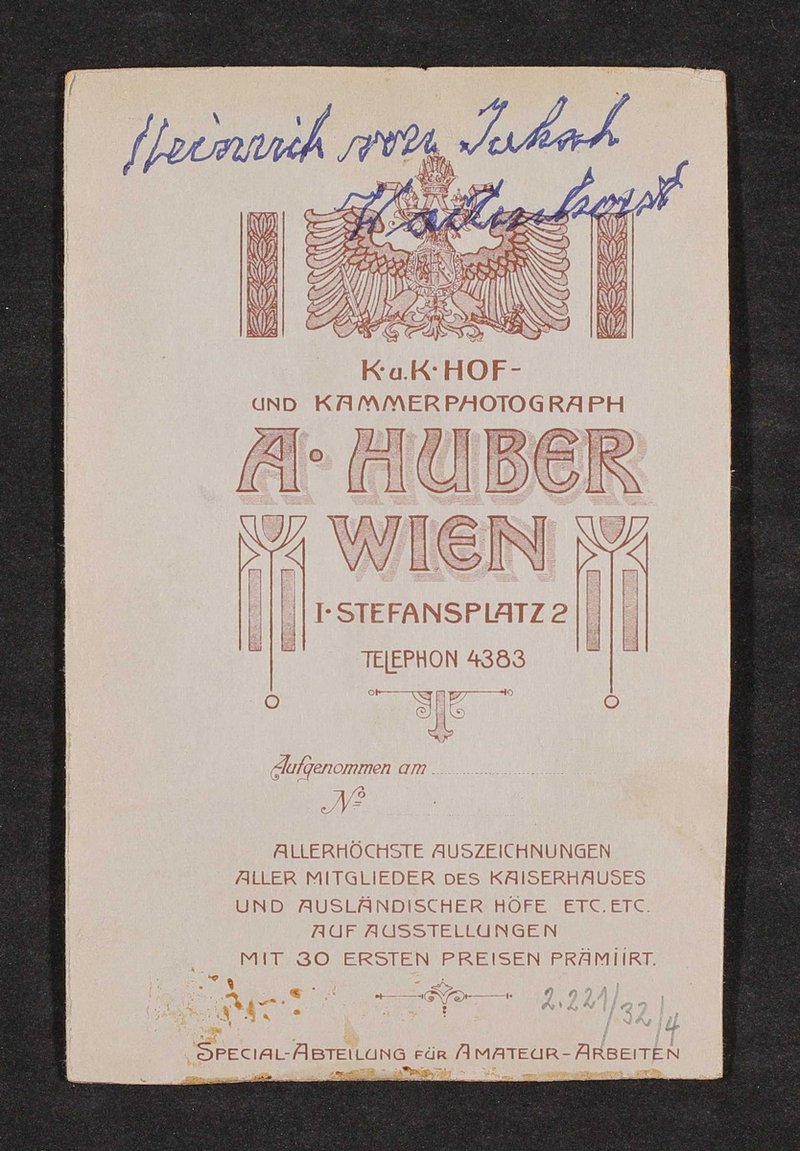 Heinrich von Jaksch
Wartenhorst
K. u. K. HOF-
UND KAMMERPHOTOGRAPH
A. HUBER
WIEN
I. STEFANSPLATZ 2
TELEPHON 4383
Aufgenommen am
No
ALLERHÖCHSTE AUSZEICHNUNGEN
ALLER MITGLIEDER DES KAISERHAUSES
UND AUSLÄNDISCHER HÖFE ETC. ETC.
AUF AUSSTELLUNGEN
MIT 30 ERSTEN PREISEN PRÄMIIRT.
2.221/32/4
SPECIAL-ABTEILUNG FÜR AMATEUR-ARBEITEN